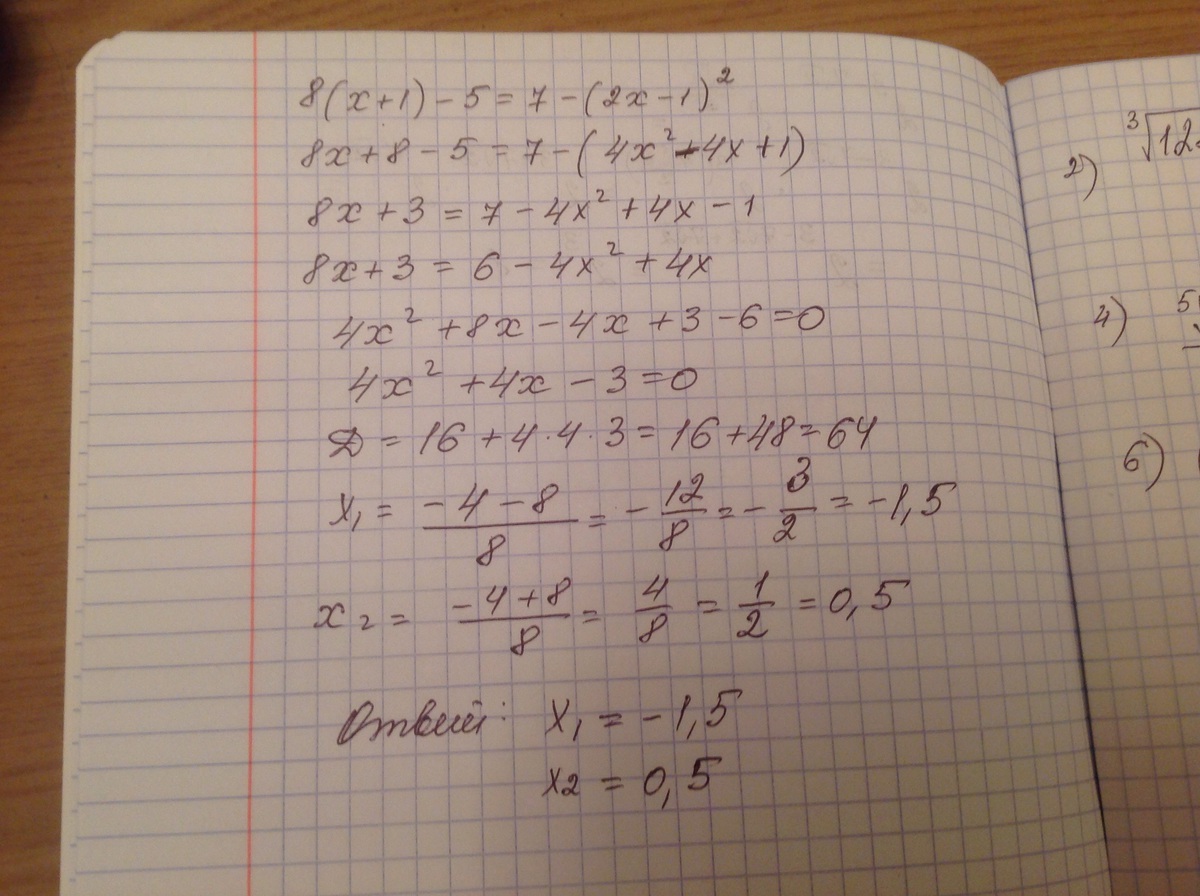 8(x+1)-5=7-(2x-1)²
8x+8-5=7-(4x²-4x+1)
8x+3=7-4x²+4x-1
8x+3=6-4x²+4x
4x²+8x-4x+3-6=0
4x²+4x-3=0
D=16+4·4·3=16+48=64
x₁=(-4-8)/8=-12/8=-3/2=-1,5
x₂=(-4+8)/8=4/8=1/2=0,5
Ответ: x₁=-1,5
x₂=0,5
2) ∛12
4) 5
6)